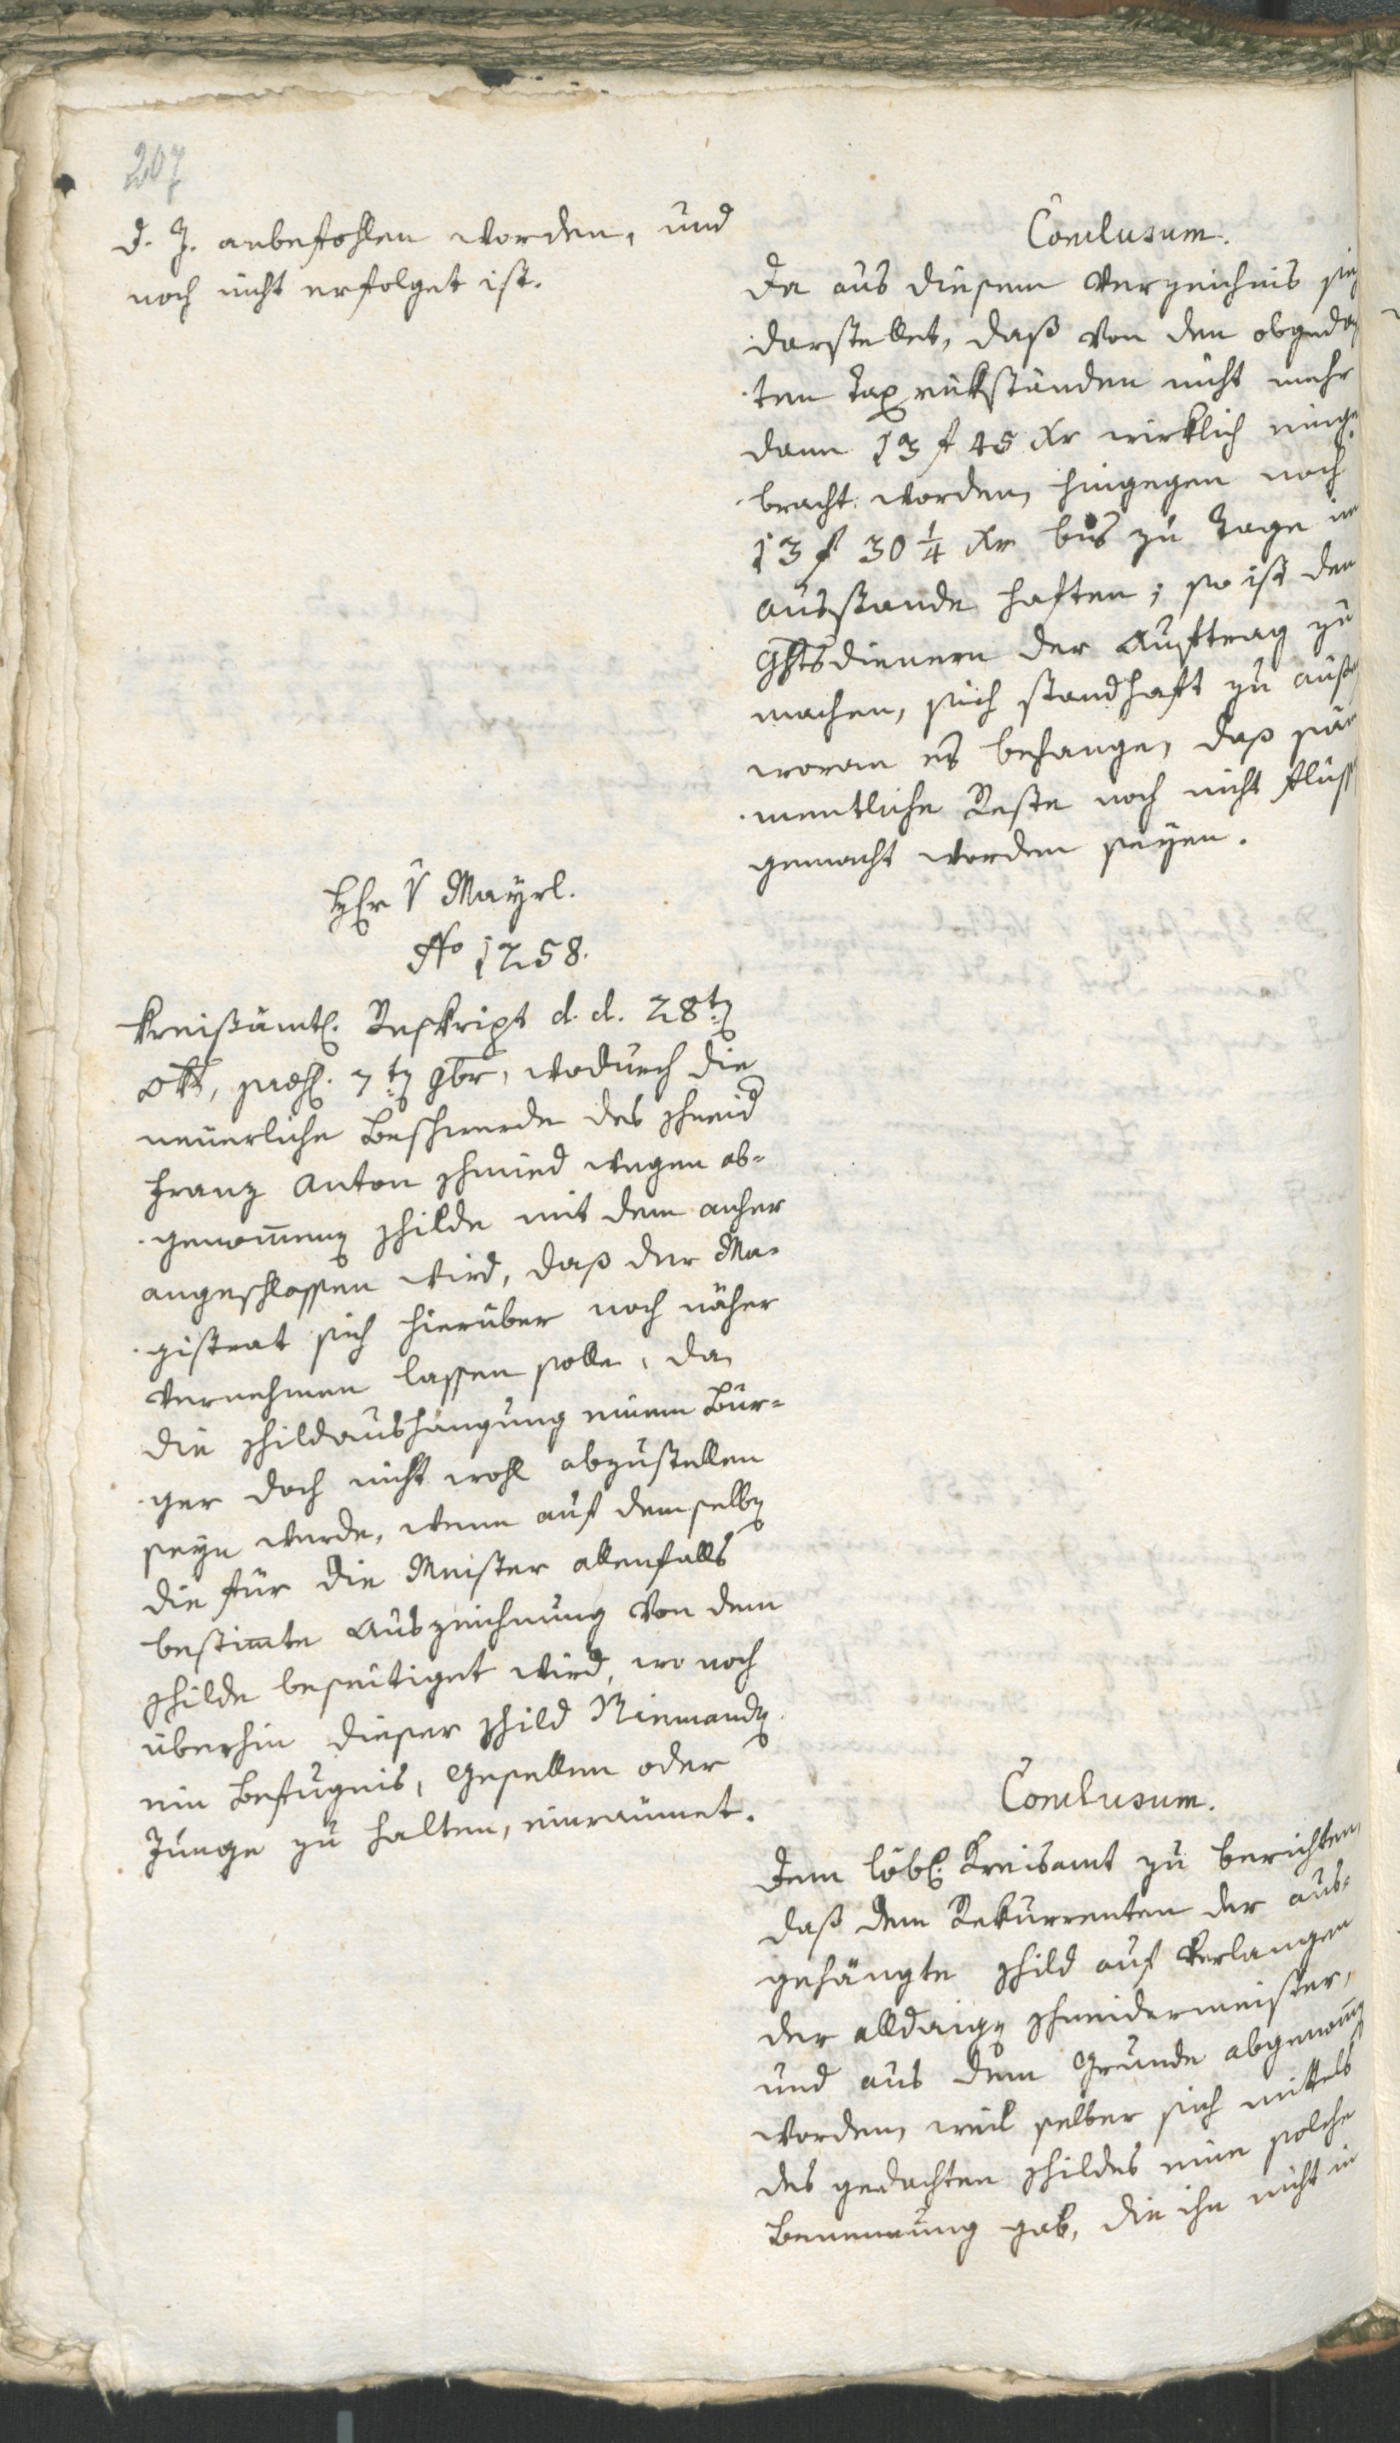 207
d. J. anbefohlen worden, und
noch nicht erfolget ist.
Conclusum.
Da aus diesem Verzeichnis sich
darstellet, daß von den obgedach
ten Taxrükständen nicht mehr
dann 13 f 45 Xr wirklich einge
bracht worden, hingegen noch
13 f 30 1/4 Xr bis zu Tage im
Ausstande haften; so ist den
Ghtsdienern der Auftrag zu
machen, sich standhaft zu äuße
woran es behange, daß säm
mentliche Reste noch nicht flüss
gemacht worden seyen.
Hr v Mayrl.
No 1258.
Kreisämtl. Reskript d. d. 28ten
Okt, praes. 7ten 9br, wodurch die
neuerliche Beschwerde des Schneid
Franz Anton Schmied wegen ab-
genommenen Schilde mit dem anher
angeschlossen wird, daß der Ma-
gistrat sich hierüber noch näher
vernehmen lassen solle, da
die Schildaushängung einem Bür-
ger doch nicht wohl abzustellen
seyn werde, wenn auf demselben
die für die Meister allenfalls
bestimte Auszeichnung von dem
Schilde beseitiget wird, wo noch
überhin dieser Schild Niemanden
ein Befugnis, Gesellen oder
Junge zu halten, einraumet.
Conclusum.
Dem löbl. Kreisamt zu berichten,
daß dem Rekurrenten der aus-
gehängte Schild auf Verlangen
der alldaigen Schneidermeister,
und aus dem Grunde abgenommen
worden, weil selber sich mittels
des gedachten Schildes eine solche
Benennung gab, die ihn nicht in